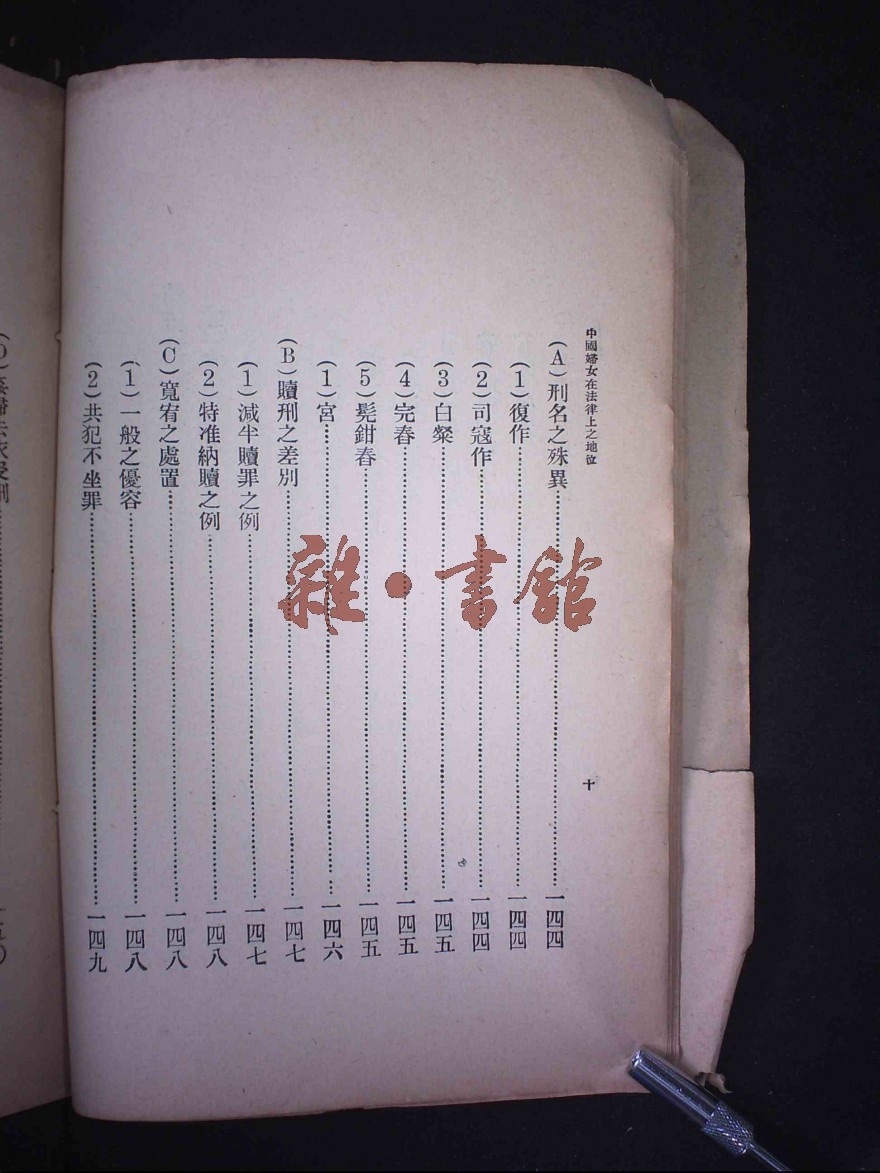 中國婦女在法律上之地位
十
(A)刑名之殊異……一四四
(1)復作……一四四
(2)司寇作……一四四
(3)白粲……一四五
(4)完舂……一四五
(5)髡鉗舂……一四五
(1)宮……一四六
(B)贖刑之差別……一四七
(1)減半贖罪之例……一四七
(2)特准納贖之例……一四八
(C)寬宥之處置……一四八
(1)一般之優容……一四八
(2)共犯不坐罪……一四九
雜·書館